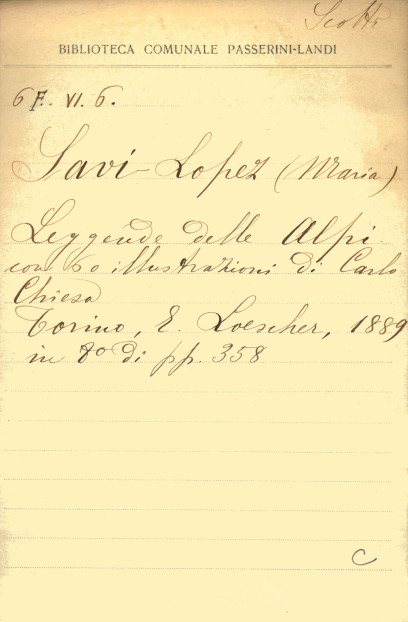 Scotti
BIBLIOTECA COMUNALE PASSERINI-LANDI
6 F. VI. 6.
Savi-Lopez (Maria)
Leggende delle Alpi.
con 60 illustrazioni di Carlo
Chiesa
Torino, E. Loescher, 1889
in 8° di pp. 358
C